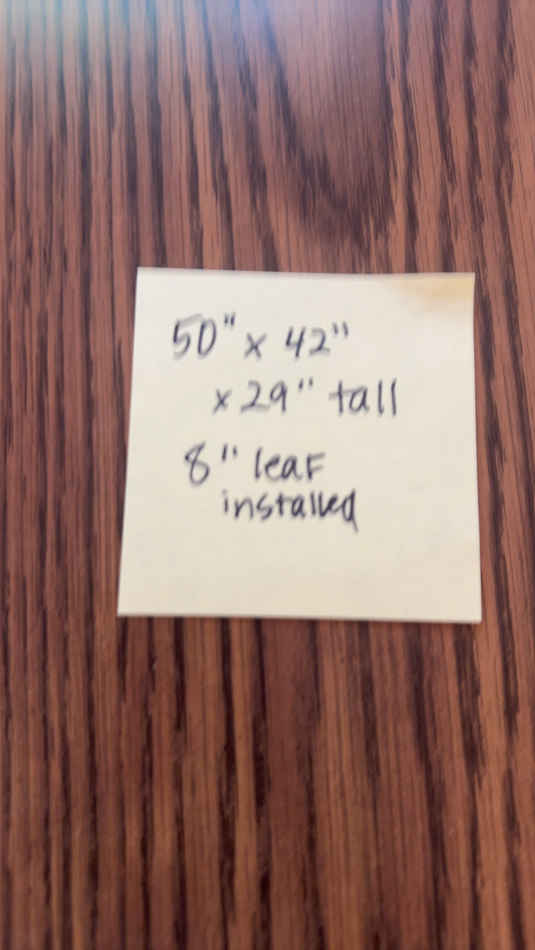 50" x 42"
x 29" tall
8" leaf
installed